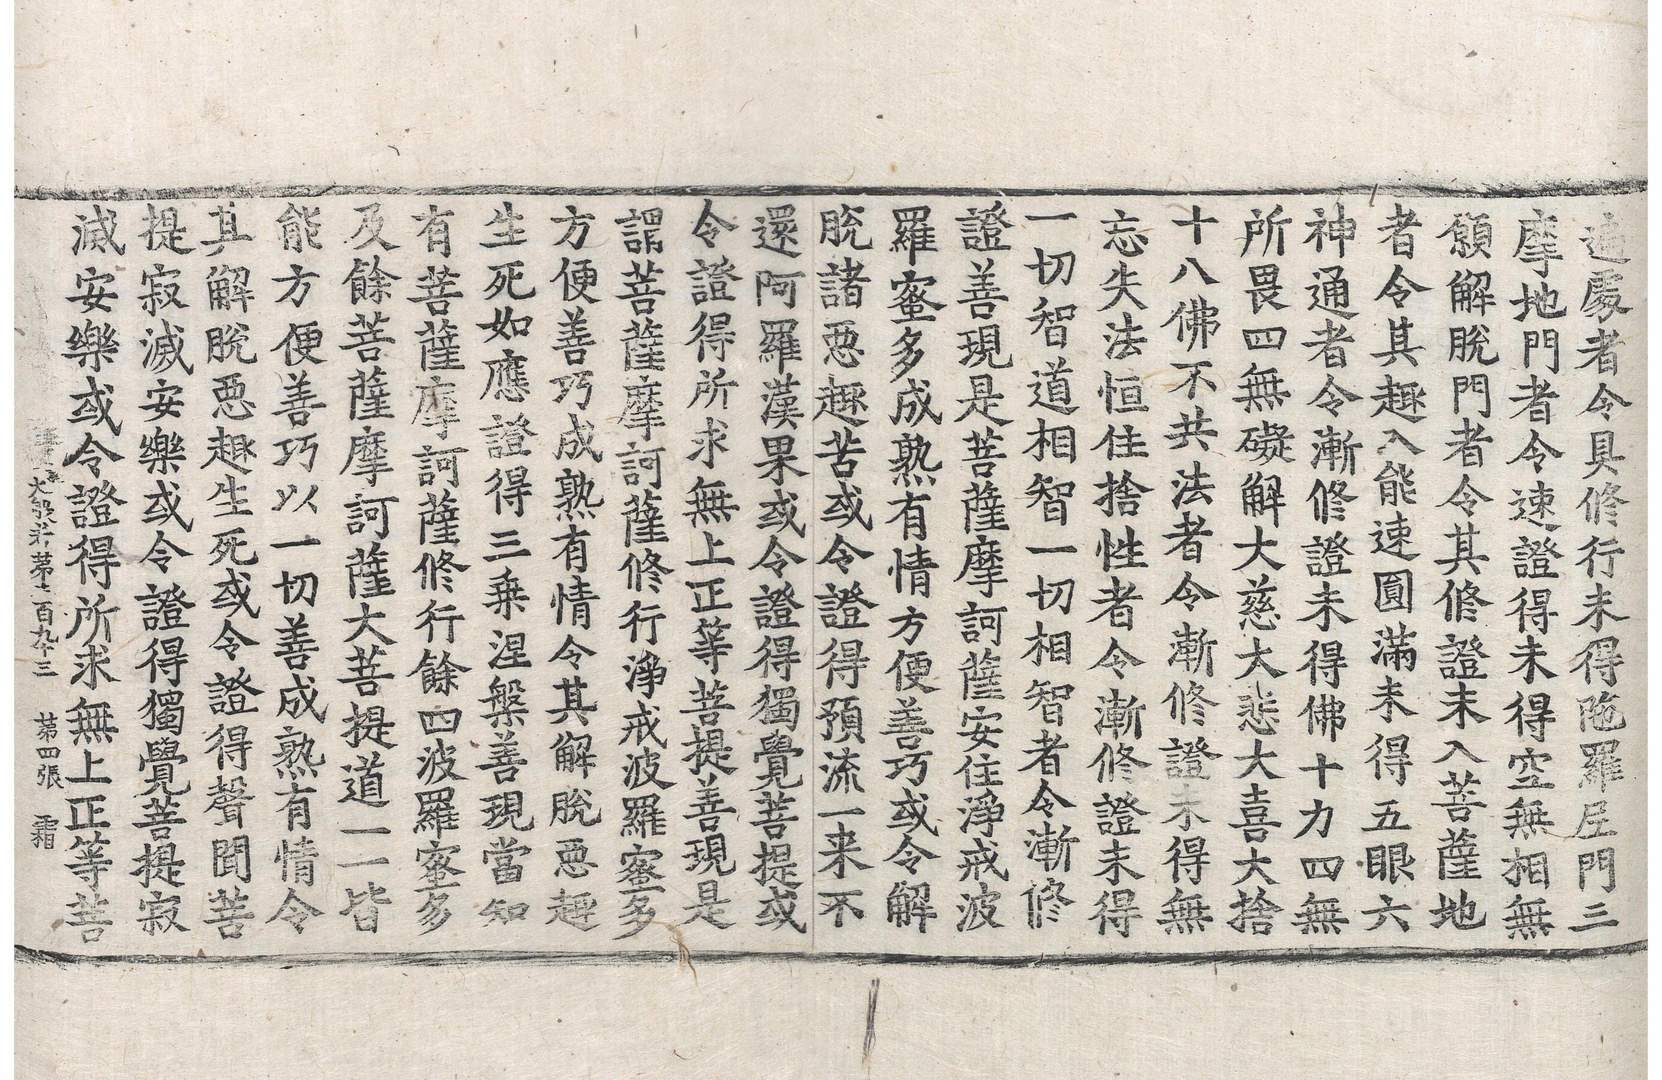 遍處者令具修行未得陁羅尼門三
摩地門者令速證得未得空無相無
願解脫門者令其修證未入菩薩地
者令其趣入能速圓滿未得五眼六
神通者令漸修證未得佛十力四無
所畏四無礙解大慈大悲大喜大捨
十八佛不共法者令漸修證未得無
忘失法恒住捨性者令漸修證未得
一切智道相智一切相智者令漸修
證善現是菩薩摩訶薩安住淨戒波
羅蜜多成熟有情方便善巧或令解
脫諸惡趣苦或令證得預流一来不
還阿羅漢果或令證得獨覺菩提或
令證得所求無上正等菩提善現是
謂菩薩摩訶薩修行淨戒波羅蜜多
方便善巧成熟有情令其解脫惡趣
生死如應證得三乘涅槃善現當知
有菩薩摩訶薩修行餘四波羅蜜多
及餘菩薩摩訶薩大菩提道一一皆
能方便善巧以一切善成熟有情令
其解脫惡趣生死或令證得聲聞菩
提寂滅安樂或令證得獨覺菩提寂
滅安樂或令證得所求無上正等菩
大般若第三百九十三 第四張 霜